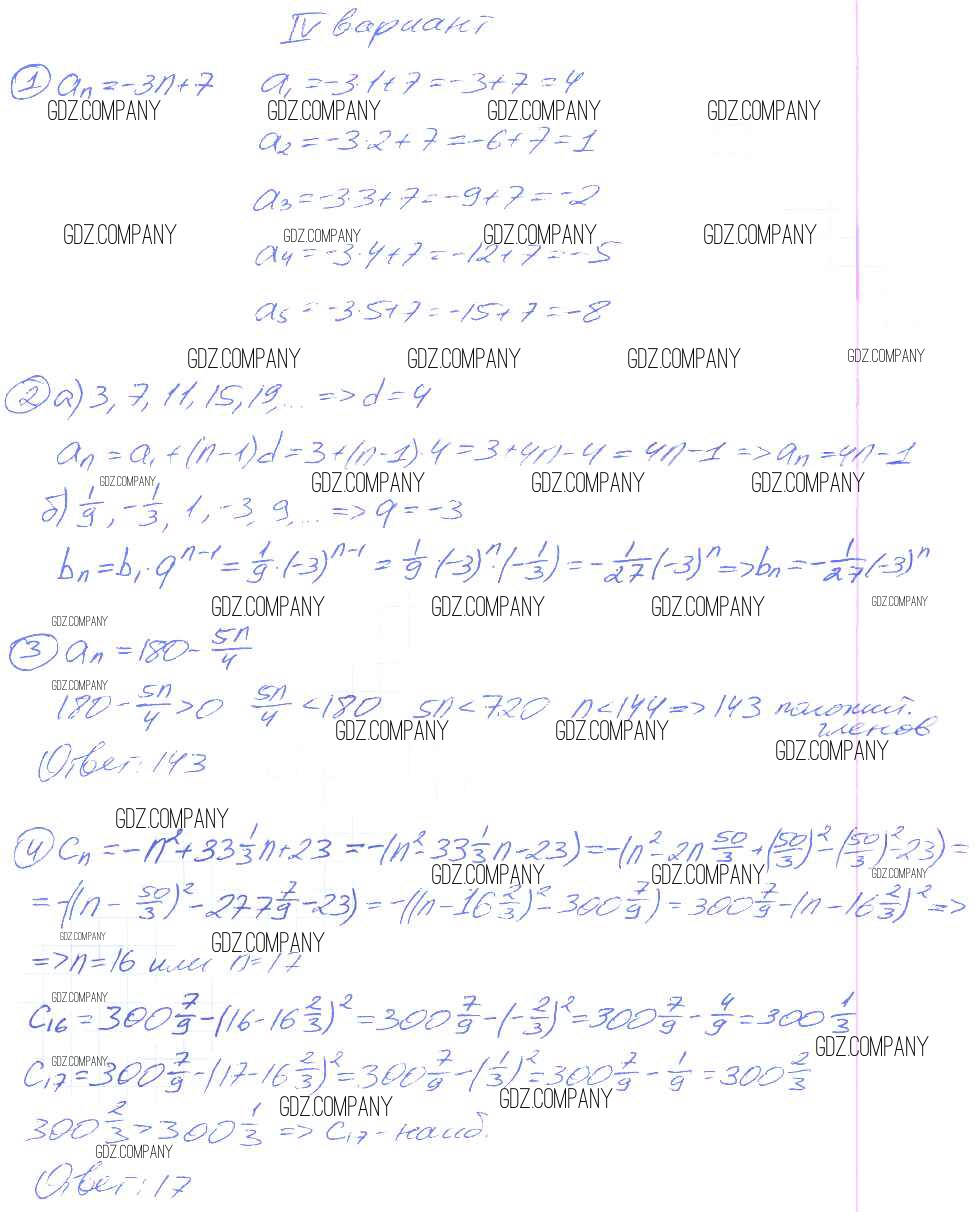 IV вариант
① aₙ = -3n+7   a₁ = -3·1+7 = -3+7 = 4
GDZ.COMPANY GDZ.COMPANY GDZ.COMPANY GDZ.COMPANY
a₂ = -3·2+7 = -6+7 = 1
a₃ = -3·3+7 = -9+7 = -2
GDZ.COMPANY GDZ.COMPANY GDZ.COMPANY GDZ.COMPANY
a₄ = -3·4+7 = -12+7 = -5
a₅ = -3·5+7 = -15+7 = -8
GDZ.COMPANY GDZ.COMPANY GDZ.COMPANY GDZ.COMPANY
② а) 3, 7, 11, 15, 19,... => d = 4
aₙ = a₁ + (n-1)d = 3+(n-1)·4 = 3+4n-4 = 4n-1 => aₙ = 4n-1
GDZ.COMPANY GDZ.COMPANY GDZ.COMPANY GDZ.COMPANY
б) 1/9, -1/3, 1, -3, 9,... => q = -3
bₙ = b₁·qⁿ⁻¹ = 1/9·(-3)ⁿ⁻¹ = 1/9·(-3)ⁿ·(-1/3) = -1/27(-3)ⁿ => bₙ = -1/27(-3)ⁿ
GDZ.COMPANY GDZ.COMPANY GDZ.COMPANY GDZ.COMPANY
GDZ.COMPANY
③ aₙ = 180 - 5n/4
GDZ.COMPANY
180 - 5n/4 > 0   5n/4 < 180   5n < 720   n < 144 => 143 положит.
членов
GDZ.COMPANY GDZ.COMPANY GDZ.COMPANY
Ответ: 143
GDZ.COMPANY
④ cₙ = -n² + 33 1/3 n + 23 = -(n² - 33 1/3 n - 23) = -(n² - 2n 50/3 + (50/3)² - (50/3)² - 23) =
GDZ.COMPANY GDZ.COMPANY GDZ.COMPANY
= -((n - 50/3)² - 277 7/9 - 23) = -((n - 16 2/3)² - 300 7/9) = 300 7/9 - (n - 16 2/3)² =>
GDZ.COMPANY GDZ.COMPANY
=> n = 16 или n = 17
GDZ.COMPANY
c₁₆ = 300 7/9 - (16 - 16 2/3)² = 300 7/9 - (-2/3)² = 300 7/9 - 4/9 = 300 1/3
GDZ.COMPANY GDZ.COMPANY
c₁₇ = 300 7/9 - (17 - 16 2/3)² = 300 7/9 - (1/3)² = 300 7/9 - 1/9 = 300 2/3
GDZ.COMPANY GDZ.COMPANY
300 2/3 > 300 1/3 => c₁₇ - наиб.
GDZ.COMPANY
Ответ: 17